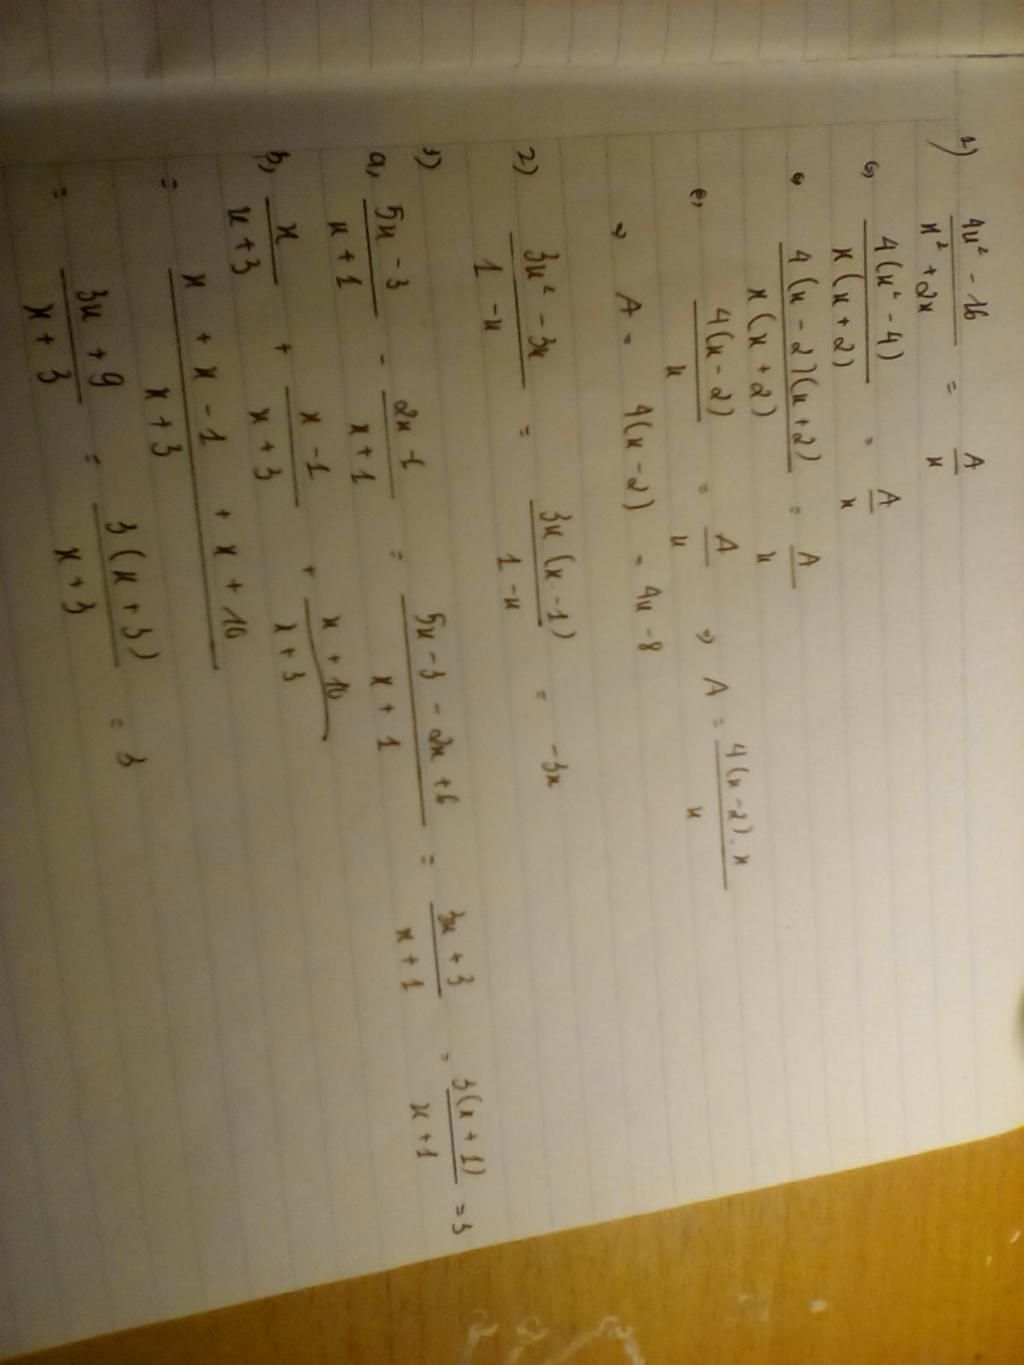 1) (4x² - 16)/(x² + 2x) = A/x
⇔ 4(x² - 4)/x(x + 2) = A/x
⇔ 4(x - 2)(x + 2)/x(x + 2) = A/x
⇔ 4(x - 2)/x = A/x ⇒ A = 4(x - 2).x/x
⇒ A = 4(x - 2) = 4x - 8
2) (3x² - 3x)/(1 - x) = 3x(x - 1)/(1 - x) = -3x
3)
a, (5x - 3)/(x + 1) - (2x - 6)/(x + 1) = (5x - 3 - 2x + 6)/(x + 1) = (3x + 3)/(x + 1) = 3(x + 1)/(x + 1) = 3
b, x/(x + 3) + (x - 1)/(x + 3) + (x + 10)/(x + 3)
= (x + x - 1 + x + 10)/(x + 3)
= (3x + 9)/(x + 3) = 3(x + 3)/(x + 3) = 3